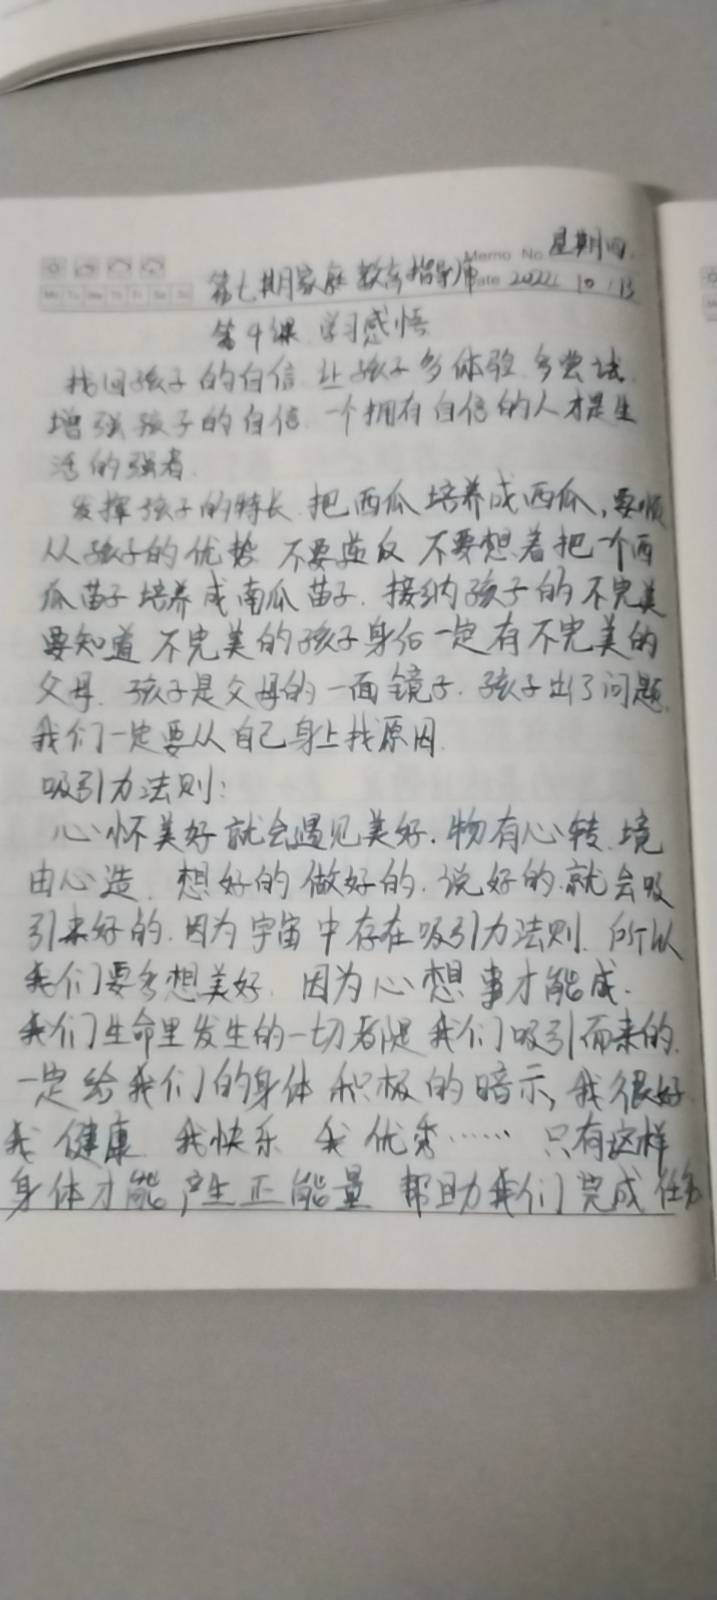 Memo No. 星期四.
第七期家庭教育指导师 Date 2022 10 13
Mo Tu We Th Fr Sa Su
第4课 学习感悟
找回孩子的自信 让孩子多体验 多尝试.
增强孩子的自信 一个拥有自信的人才是生
活的强者.
发挥孩子的特长 把西瓜培养成西瓜,要顺
从孩子的优势 不要 不要想着把一个西
瓜苗子培养成南瓜苗子. 接纳孩子的不完美
要知道 不完美的孩子身后一定有不完美的
父母. 孩子是父母的一面镜子. 孩子出了问题.
我们一定要从自己身上找原因.
吸引力法则:
心怀美好就会遇见美好. 物有心转 境
由心造. 想好的 做好的. 说好的.就会吸
引来好的.因为宇宙中存在吸引力法则. 所以
我们要多想美好. 因为心想事才能成.
我们生命里发生的一切都是我们吸引而来的.
一定给我们的身体 积极的暗示,我很好.
我健康 我快乐 我优秀…… 只有这样
身体才能产生正能量 帮助我们完成任务